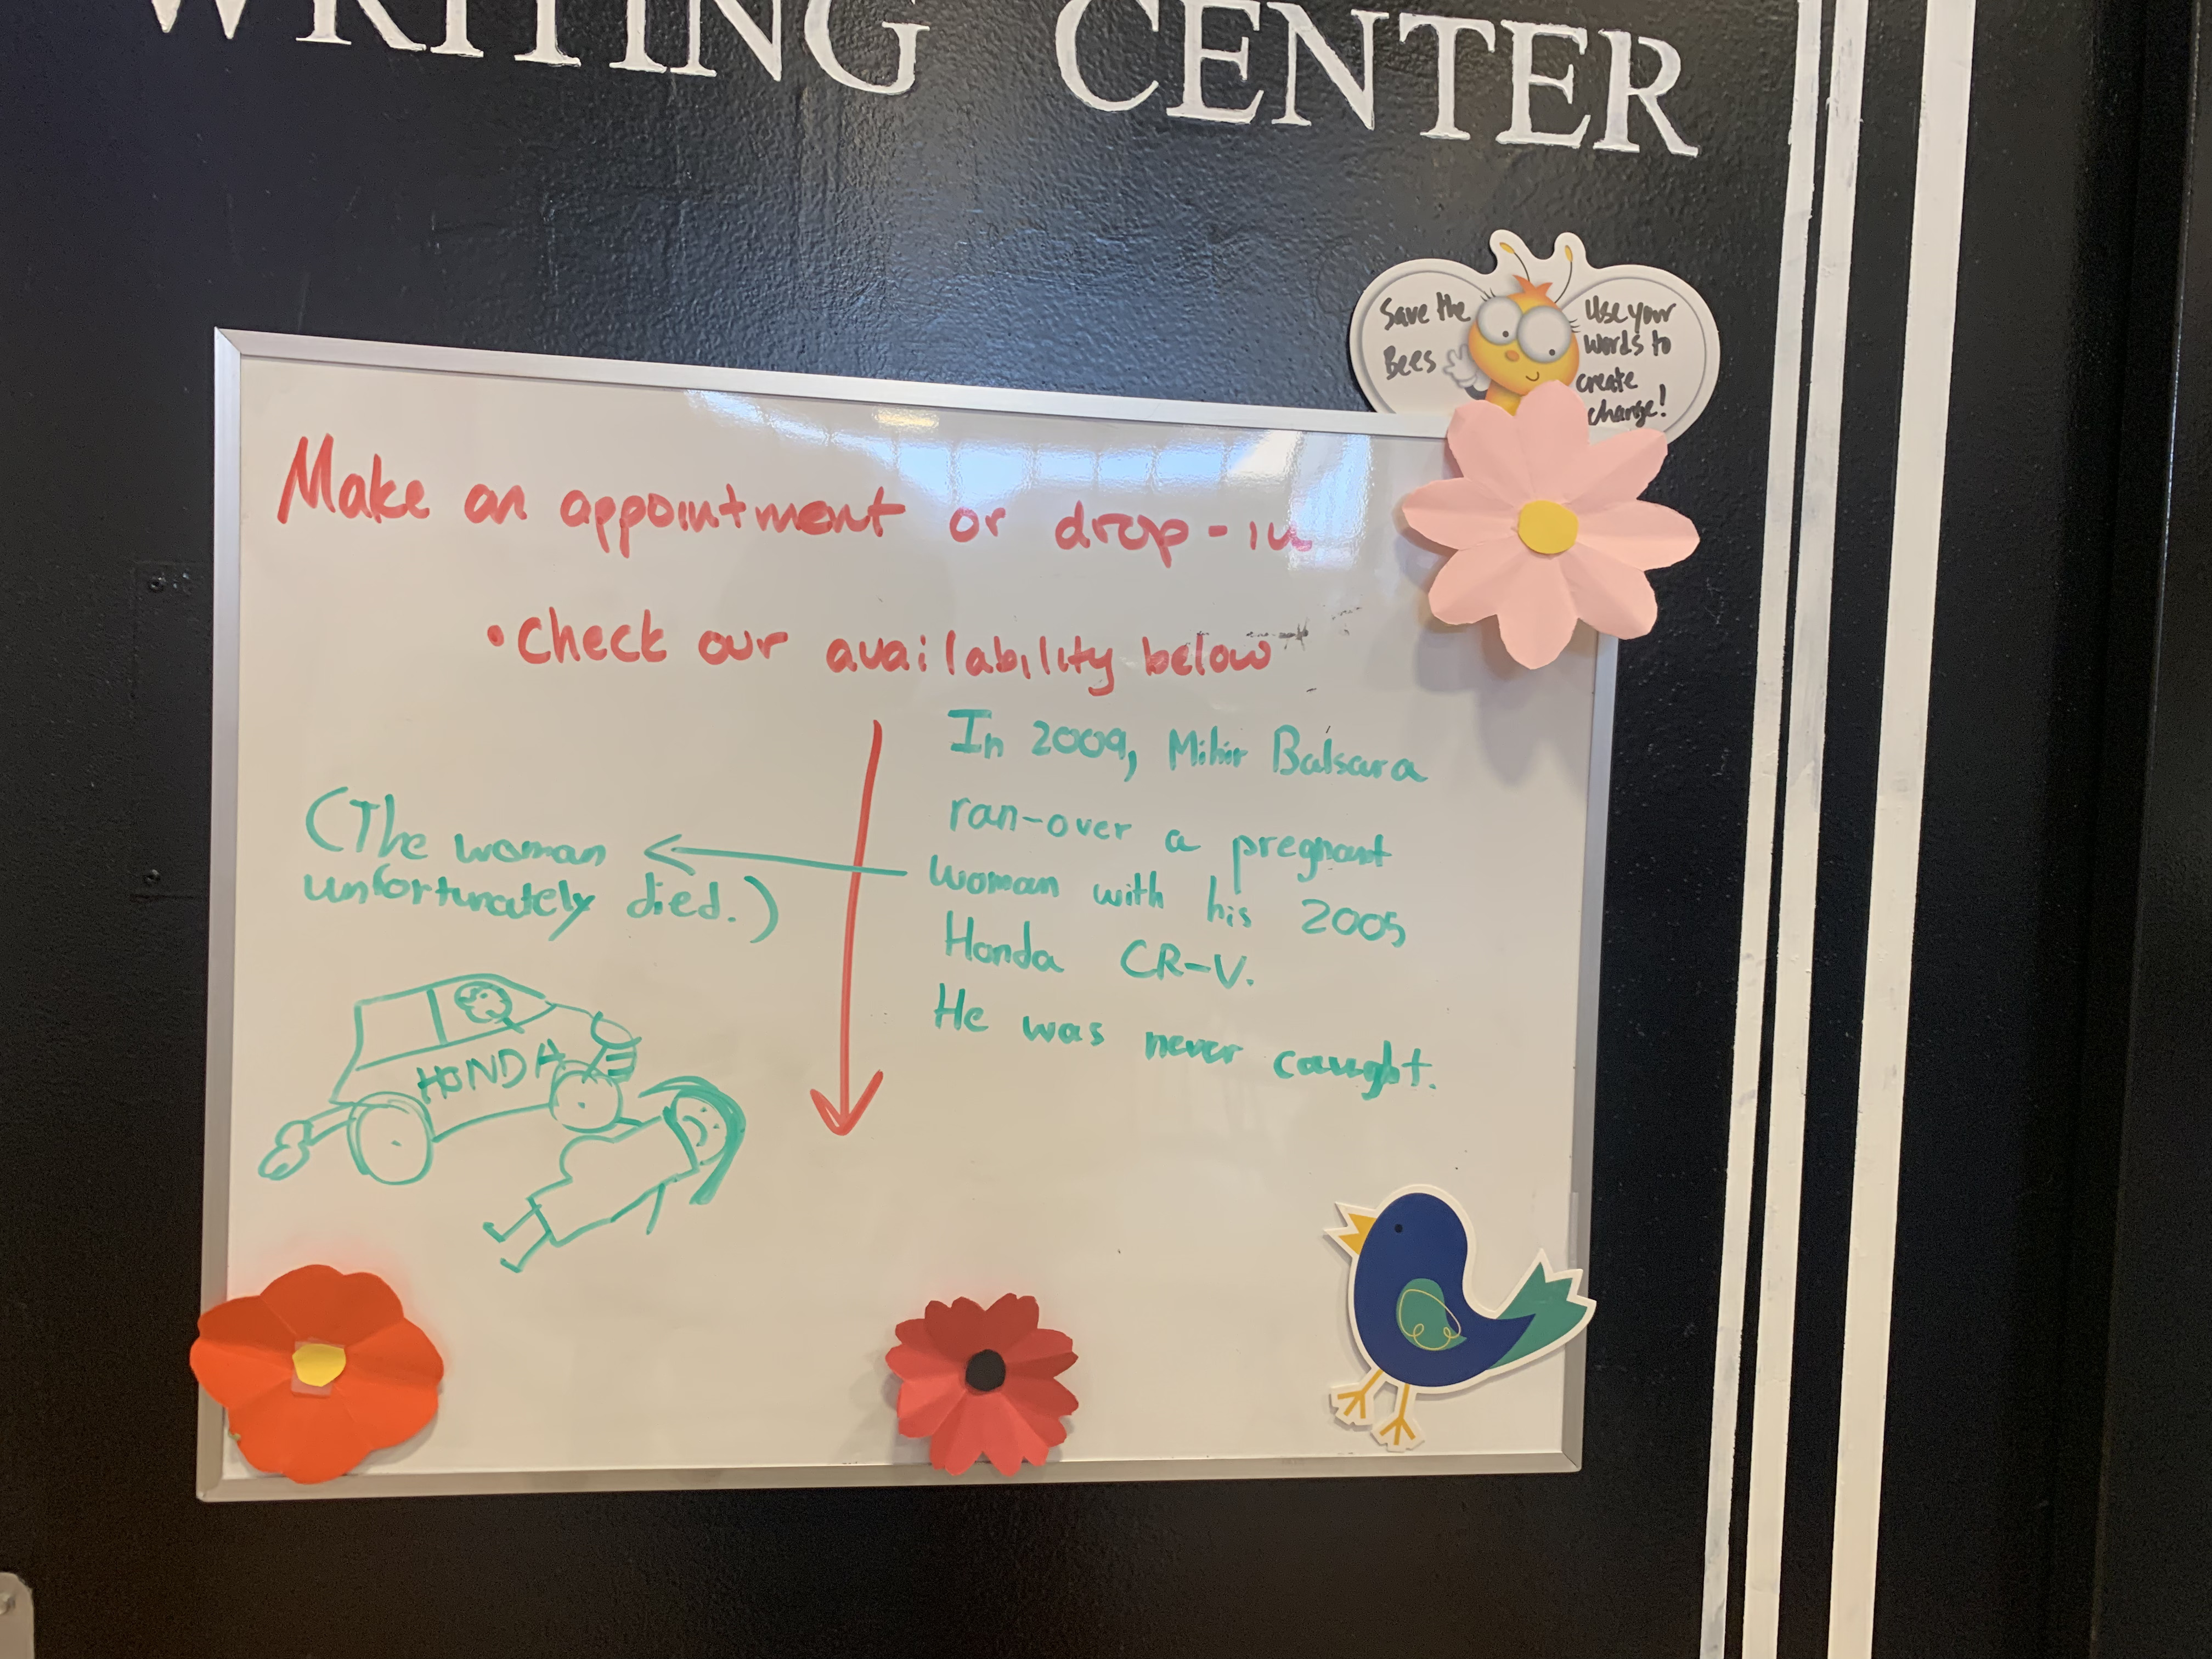 WRITING CENTER
Save the
Bees
Use your
words to
create
change!
Make an appointment or drop-in
• Check our availability below
In 2009, Mihir Balsara
ran-over a pregnant
woman with his 2005
Honda CR-V.
He was never caught.
(The woman
unfortunately died.)
HONDA